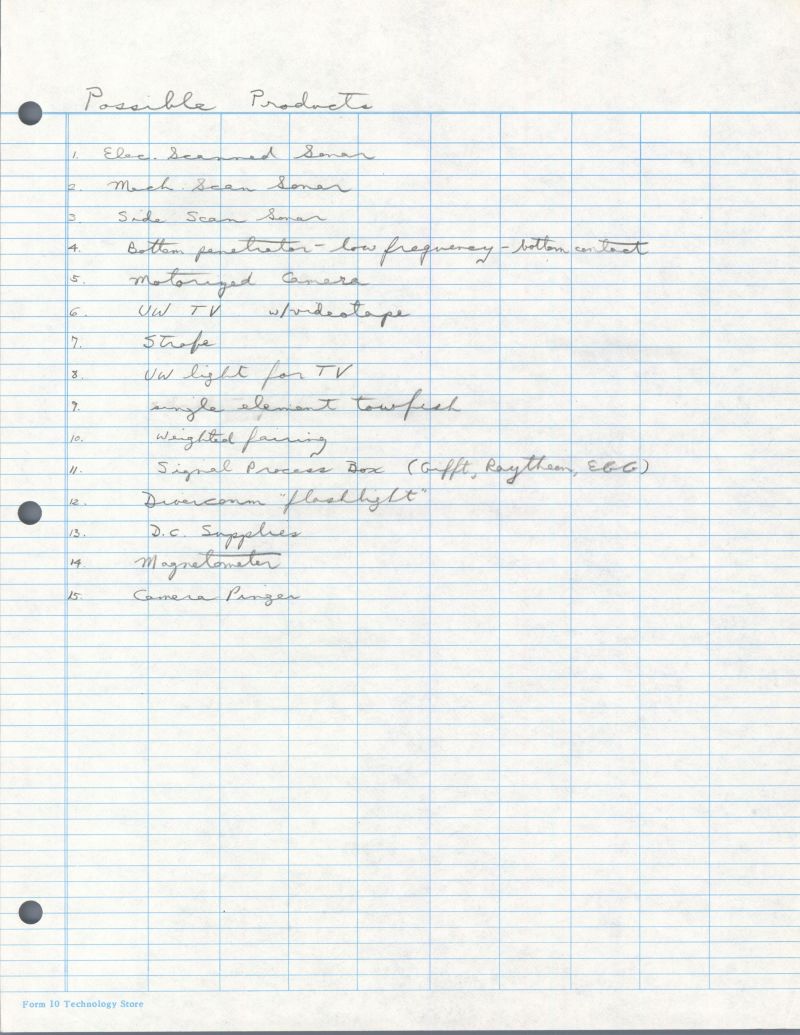 Possible Products
1. Elec. Scanned Sonar
2. Mech. Scan Sonar
3. Side Scan Sonar
4. Bottom penetrator - low frequency - bottom contact
5. Motorized Camera
6. UW TV w/videotape
7. Strobe
8. UW light for TV
9. single element towfish
10. Weighted fairing
11. Signal Process Box (Gifft, Raytheon, EGG)
12. Divercomm "flashlight"
13. D.C. Supplies
14. Magnetometer
15. Camera Pinger
Form 10 Technology Store